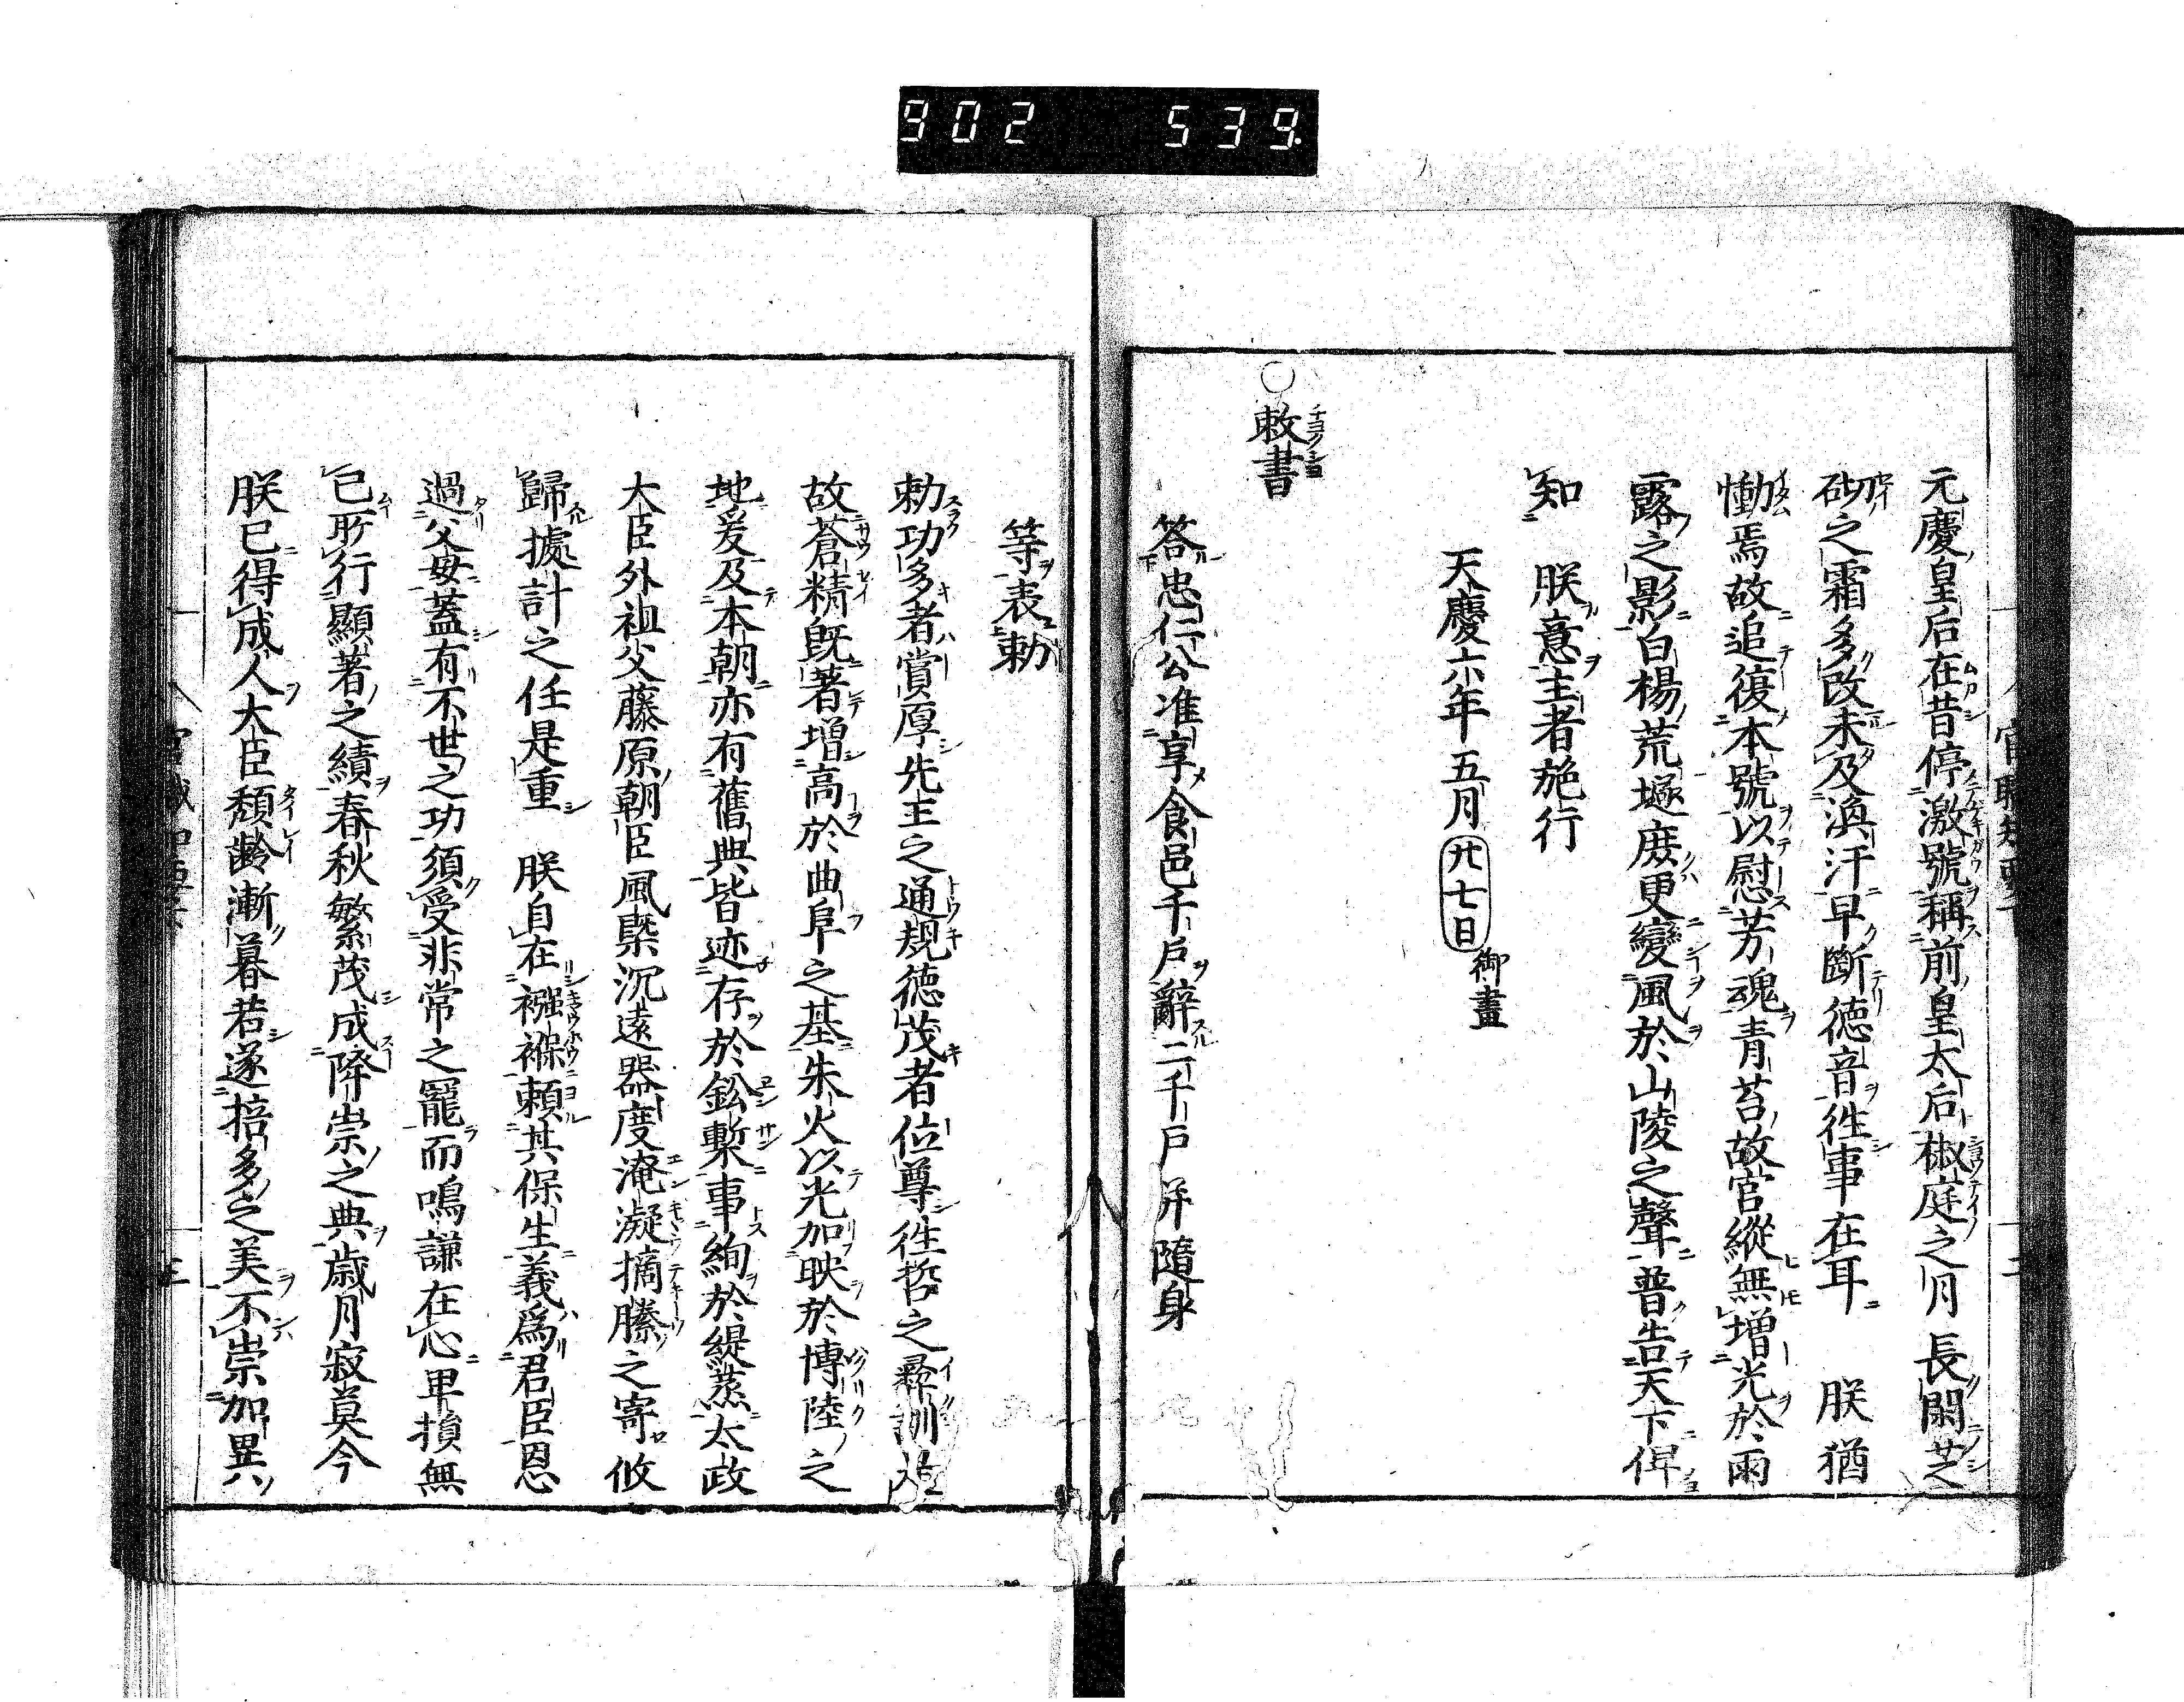 902 539.
元慶皇后在昔停激號稱前皇太后椒庭之月長閑芝
砌之霜多改未及渙汗早斷德音徃事在耳 朕猶
慟焉故追復本號以慰芳魂青苔故宮縱無増光於雨
露之影白楊荒壥庻更變風於山陵之聲普告天下俾
知 朕意主者施行
天慶六年五月廿七日御畫
○敕書
答忠仁公准享食邑千戶辭二千戶并隨身
等表勅
勅功多者賞厚先主之通規徳茂者位尊徃哲之彛訓
故蒼精旣著増高於曲阜之基朱火以光加映於博陸之
地爰及本朝亦有舊典皆迹存於鈆槧事絢於緹蒸太政
大臣外祖父藤原朝臣風槩沉遠器度淹凝摘勝之寄攸
歸據計之任是重 朕自在襁褓頼其保生義爲君臣恩
過父母蓋有不世之功須受非常之寵而鳴謙在心卑損無
已所行顯著之績春秋繁茂成降崇之典歳月寂莫今
朕已得成人大臣頽齡漸暮若遂掊多之美不崇加異